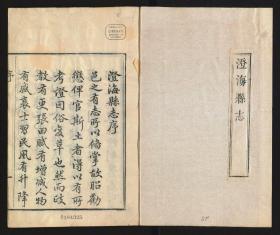 澄海縣志
澄海縣志序
邑之有志所以備掌故昭勸
懲俾官斯土者得以有所
考證因俗宜革也然而政
教有更張田賦有增減人物
有盛衰士習民風有升降
序